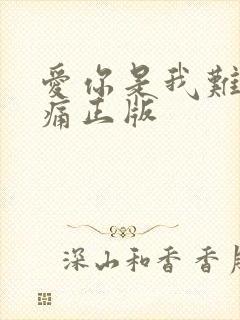 愛你是我難
痛正版
深山和香香